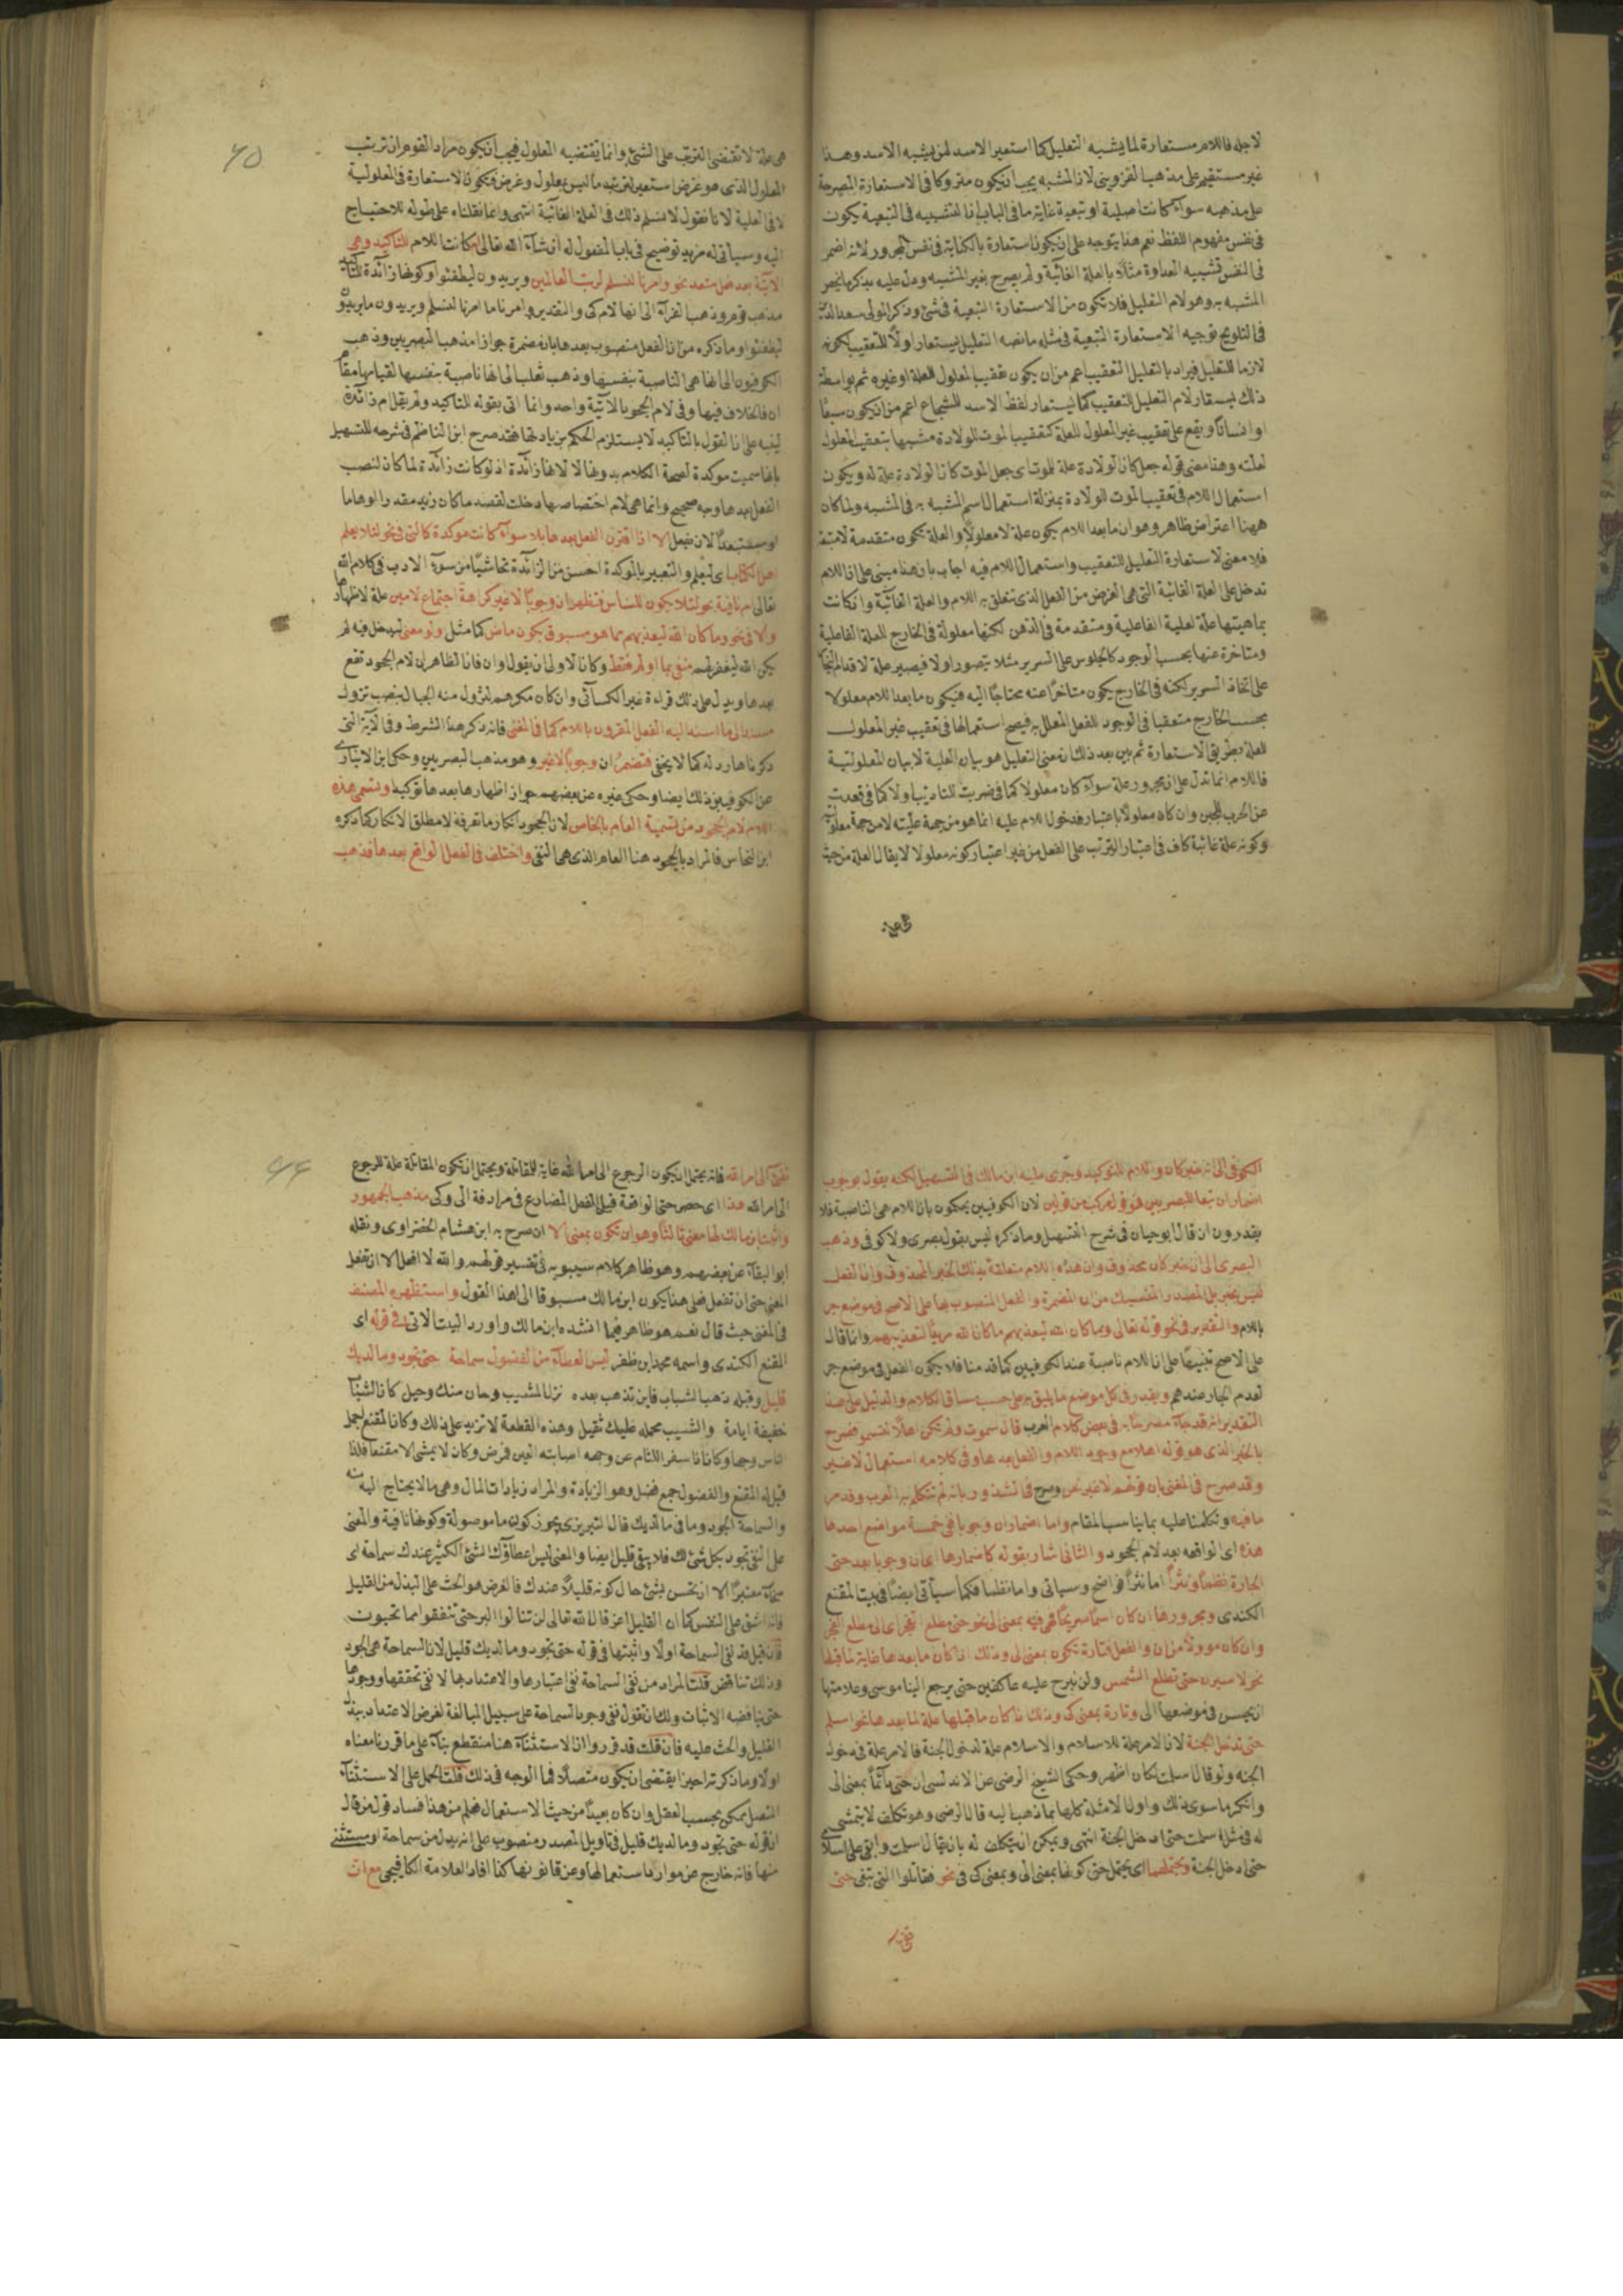 لاجله فاللام مستعارة لما يشبه التعليل كما استعير الاسد لمن يشبه الاسد وهذا
غير مستقيم على مذهب القزويني لان المشبه يجب ان يكون متروكا في الاستعارة المصرحة
على مذهبه سواء كانت اصلية او تبعية غاية ما في الباب ان التشبيه في التبعية يكون
في نفس مفهوم اللفظ نعم هذا يتوجه على ان يكون استعارة بالكناية في نفس المجرور لانه اضمر
في النفس تشبيه العداوة مثلا بالعلة الغائية ولم يصرح بغير المشبه ودل عليه بذكر ما يخص
المشبه به وهو لام التعليل فلا تكون من الاستعارة التبعية في شيء وذكر المولى سعد الدين
في التلويح توجيه الاستعارة التبعية في مثله ما نصه التعليل يستعار اولا للتعقيب لكونه
لازما للتعليل فيراد بالتعليل التعقيب اعم من ان يكون تعقيب المعلول للعلة او غيره ثم بواسطة
ذلك يستعار لام التعليل للتعقيب كما يستعار لفظ الاسد للشجاع اعم من ان يكون سبعا
او انسانا ويقع على تعقيب غير المعلول للعلة كتعقيب الموت للولادة مشبها بتعقيب المعلول
لعلته وهذا معنى قوله جعل كان الولادة علة للموت اى يجعل الموت كان الولادة علة له ويكون
استعمال اللام في تعقيب الموت للولادة بمنزلة استعمال اسم المشبه به في المشبه ولما كان
ههنا اعتراض ظاهر وهو ان ما بعد اللام يكون علة لا معلولا والعلة تكون متقدمة لا متعقبة
فلا معنى لاستعارة التعليل للتعقيب واستعمال اللام فيه اجاب بان هذا مبنى على ان اللام
تدخل على العلة الغائية التى هى الغرض من الفعل الذى تتعلق به اللام والعلة الغائية وان كانت
بماهيتها علة لعلية الفاعلية ومتقدمة في الذهن لكنها معلولة في الخارج للعلة الفاعلية
ومتاخرة عنها بحسب الوجود كالجلوس على السرير مثلا يتصور اولا فيصير علة لاقدام النجار
على اتخاذ السرير لكنه في الخارج يكون متاخرا عنه محتاجا اليه فيكون ما بعد اللام معلولا
بحسب الخارج متعقبا في الوجود للفعل المعلل به فيصح استعمالها في تعقيب غير المعلول
للعلة بطريق الاستعارة ثم بين بعد ذلك ان معنى التعليل هو بيان العلية لا بيان المعلولية
فاللام انما تدل على ان مجرور علة سواء كان معلولا كما في ضربت للتاديب اولا كما في قعدت
عن الحرب للجبن وان كان معلولا باعتبار فدخول اللام عليه انما هو من جهة عليته لا من جهة معلوليته
وكونه علة غائية كاف في اعتبار الترتب على الفعل من غير اعتبار كونه معلولا لا يقال العلة من حيث
هى علة
٦٥
هى علة لا تقتضى الترتب على الشئ وانما يقتضيه المعلول فيجب ان يكون مراد القوم ان ترتب
المعلول الذى هو غرض استعير لترتيب ما ليس بمعلول وغرض فتكون الاستعارة في المعلولية
لا في العلية لانا نقول لا نسلم ذلك في العلة الغائية انتهى وانما نقلناه على طوله للاحتياج
اليه وسياتى له مزيد توضيح في باب المفعول له ان شاء الله تعالى ام كانت اللام للتاكيد وهى
الآتية بعد فعل متعد نحو وامرنا لنسلم لرب العالمين ويريدون ليطفئوا وكونها زائدة للتاكيد
مذهب قوم وذهب الفراء الى انها لام كى والتقدير وامرنا ما امرنا لنسلم ويريدون ما يريدون
ليطفئوا وما ذكره من ان الفعل منصوب بعدها بان مضمرة جوازا مذهب البصريين وذهب
الكوفيون الى انها هى الناصبة بنفسها وذهب ثعلب الى انها ناصبة بنفسها لقيامها مقام
ان فالخلاف فيها وفي لام الجحود الآتية واحد وانما اتى بقوله للتاكيد ولم يقل ام زائدة
لينبه على ان القول بالتاكيد لا يستلزم الحكم بزيادتها فقد صرح ابن الناظم في شرحه للتسهيل
بانها سميت موكدة لصحة الكلام بدونها لا لانها زائدة اذ لو كانت زائدة لما كان لنصب
الفعل بعدها وجه صحيح وانما هى لام اختصاص دخلت لقصد ما كان زيد مقدرا او هاما
او مستبعدا لان يفعل الا اذا اقترن الفعل بعدها بلا سواء كانت موكدة كالتى في نحو لئلا يعلم
اهل الكتاب اى ليعلم والتعبير بالموكدة احسن من الزائدة تحاشيا من سوء الادب في كلام الله
تعالى ام نافية نحو لئلا يكون للناس فتظهر ان وجوبا لا غير كراهة اجتماع لامين علة لاظهارها
ولا في نحو وما كان الله ليعذبهم مما هو مسبوق بكون ماض كما مثل ولو معنى ليدخل فيه لم
يكن الله ليغفر لهم منفى بما او لم فقط وكان الاولى ان يقول او ان فان الظاهر ان لام الجحود تقع
بعدها ويدل على ذلك قراءة غير الكسائى وان كان مكرهم لتزول منه الجبال بنصب تزول
مسند الى ما اسند اليه الفعل المقرون باللام كما في المغنى فانه ذكر هذا الشرط وفي الآية التى
ذكرناها رد له كما لا يخفى فتضمر ان وجوبا لا غير وهو مذهب البصريين وحكى ابن الانبارى
عن الكوفيين ذلك ايضا وحكى غيره عن بعضهم جواز اظهارها بعدها توكيدا وتسمى هذه
اللام لام الجحود من تسمية العام بالخاص لان الجحود انكار ما تعرفه لا مطلق الانكار كما ذكره
ابن النحاس فالمراد بالجحود هنا العام الذى هى النفى واختلف في الفعل الواقع بعدها فذهب
الكوفى الى انه خبر كان واللام للتوكيد وجرى عليه ابن مالك في التسهيل لكنه يقول بوجوب
اضمار ان تبعا للبصريين فهو قول مركب من قولين لان الكوفيين يحكمون بان اللام هى الناصبة فلا
يقدرون ان قال ابو حيان في شرح التسهيل وما ذكره ليس بقول بصرى ولا كوفى وذهب
البصرى الى ان خبر كان محذوف وان هذه اللام متعلقة بذلك الخبر المحذوف وان الفعل
ليس بخبر بل المصدر المنسبك من ان المضمرة والفعل المنصوب بها على الاصح في موضع جر
باللام والتقدير في نحو قوله تعالى وما كان الله ليعذبهم ما كان الله مريدا لتعذيبهم وانما قال
على الاصح تنبيها على ان اللام ناصبة عند الكوفيين كما قدمنا فلا يكون الفعل في موضع جر
لعدم الجار عندهم ويقدر في كل موضع ما يليق به على حسب مساق الكلام والدليل على هذا
التقدير انه قد جاء مصرحا به في بعض كلام العرب قال سموت ولم تكن اهلا لتسمو فصرح
بالخبر الذى هو قوله اهلا مع وجود اللام والفعل بعدها وفي كلامه استعمال لا غير
وقد صرح في المغنى بان قولهم لا غير لحن وصرح في الشذور بانه لم تتكلم به العرب وقد مر
ما فيه وتكلمنا عليه بما يناسب المقام واما اضمار ان وجوبا في خمسة مواضع احدها
هذه اى الواقعه بعد لام الجحود والثانى اشار بقوله كاضمارها اى ان وجوبا بعد حتى
الجارة نظما ونثرا اما نثرا فواضح وسياتى واما نظما فكما سيأتى ايضا في بيت المقنع
الكندى ومجرورها ان كان اسما صريحا فهى فيه بمعنى الى نحو حتى مطلع الفجر اى الى مطلع الفجر
وان كان موولا من ان والفعل فتارة تكون بمعنى الى وذلك اذا كان ما بعدها غاية لما قبلها
نحو لاسيرن حتى تطلع الشمس ولن نبرح عليه عاكفين حتى يرجع الينا موسى وعلامتها
ان يحسن في موضعها الى وتارة بمعنى كى وذلك اذا كان ما قبلها علة لما بعدها نحو اسلم
حتى تدخل الجنة لان الامر علة للاسلام والاسلام علة لدخول الجنة فالامر علة في دخول
الجنه ولو قال اسلمت لكان اظهر وحكى الشيخ الرضى عن الاندلسى ان حتى دائما بمعنى الى
وانكر ما سوى ذلك واول الامثلة كلها بما ذهب اليه قال الرضى وهو تكلف لا يتمشى
له في مثل اسلمت حتى ادخل الجنة انتهى ويمكن ان يتكلف له بان يقال اسلمت وابقى على اسلامى
حتى ادخل الجنة ويحتملهما اى يحتمل حتى كونها بمعنى الى وبمعنى كى في نحو فقاتلوا التى تبغى حتى
تفئ
٦٦
تفئ الى امر الله فانه يحتمل ان يكون الرجوع الى امر الله غاية للمقاتلة ويحتمل ان تكون المقاتلة علة للرجوع
الى امر الله هذا اى حصر حتى الواقعة قبل الفعل المضارع في مرادفة الى وكى مذهب الجمهور
واثبت ابن مالك لها معنى ثالثا وهو ان تكون بمعنى الا ان صرح به ابن هشام الخضراوى ونقله
ابو البقاء عن بعضهم وهو ظاهر كلام سيبويه في تفسير قولهم والله لا افعل الا ان تفعل
المعنى حتى ان تفعل فعلى هذا يكون ابن مالك مسبوقا الى هذا القول واستظهره المصنف
في المغنى حيث قال نعم هو ظاهر فيما انشده ابن مالك واورد البيت الاتى في قوله اى
المقنع الكندى واسمه محمد ابن ظفر ليس العطاء من الفضول سماحة حتى تجود وما لديك
قليل وقبله ذهب الشباب فاين تذهب بعده نزل المشيب وحان منك رحيل كان الشباب
خفيفة ايامه والشيب محمله عليك ثقيل وهذه القطعة لا تزيد على ذلك وكان المقنع اجمل
الناس وجها وكان اذا سفر اللثام عن وجهه اصابته العين فمرض وكان لا يمشى الا مقنعا فلذا
قيل له المقنع والفضول جمع فضل وهو الزيادة والمراد زيادات المال وهى ما لا يحتاج اليه منه
والسماحة الجود وما في ما لديك قال التبريزى يجوز كون ما موصولة وكونها نافية والمعنى
على النفى تجود بكل شئ لك فلا يبقى قليل ايضا والمعنى ليس اعطاؤك الشئ الكثير عندك سماحة اى
سماحة معتبرا الا ان تحسن بشئ حال كونه قليلا عندك فالغرض هو الحث على البذل من القليل
فانه اشق على النفس كما ان القليل اعز قال الله تعالى لن تنالوا البر حتى تنفقوا مما تحبون
فان قيل قد نفى السماحة اولا واثبتها في قوله حتى تجود وما لديك قليل لان السماحة هى الجود
وذلك تناقض قلت المراد من نفى السماحة نفى اعتبارها والاعتداد بها لا نفى تحققها ووجودها
حتى يناقضه الاثبات ولك ان تقول نفى وجود السماحة على سبيل المبالغة لغرض الاعتداد ببذل
القليل والحث عليه فان قلت قد قرروا ان الاستثناء هنا منقطع بناء على ما قررنا معناه
اولا وما ذكرته اخيرا يقتضى ان يكون متصلا فما الوجه في ذلك قلت الحمل على الاستثناء
المتصل ممكن بحسب العقل وان كان بعيدا من حيث الاستعمال فعلم من هذا فساد قول من قال
ان قوله حتى تجود وما لديك قليل في تاويل المصدر منصوب على انه بدل من سماحة او مستثنى
منها فانه خارج عن موارد استعمالها وعن قانونها كذا افاد العلامة الكافيجى مع ان